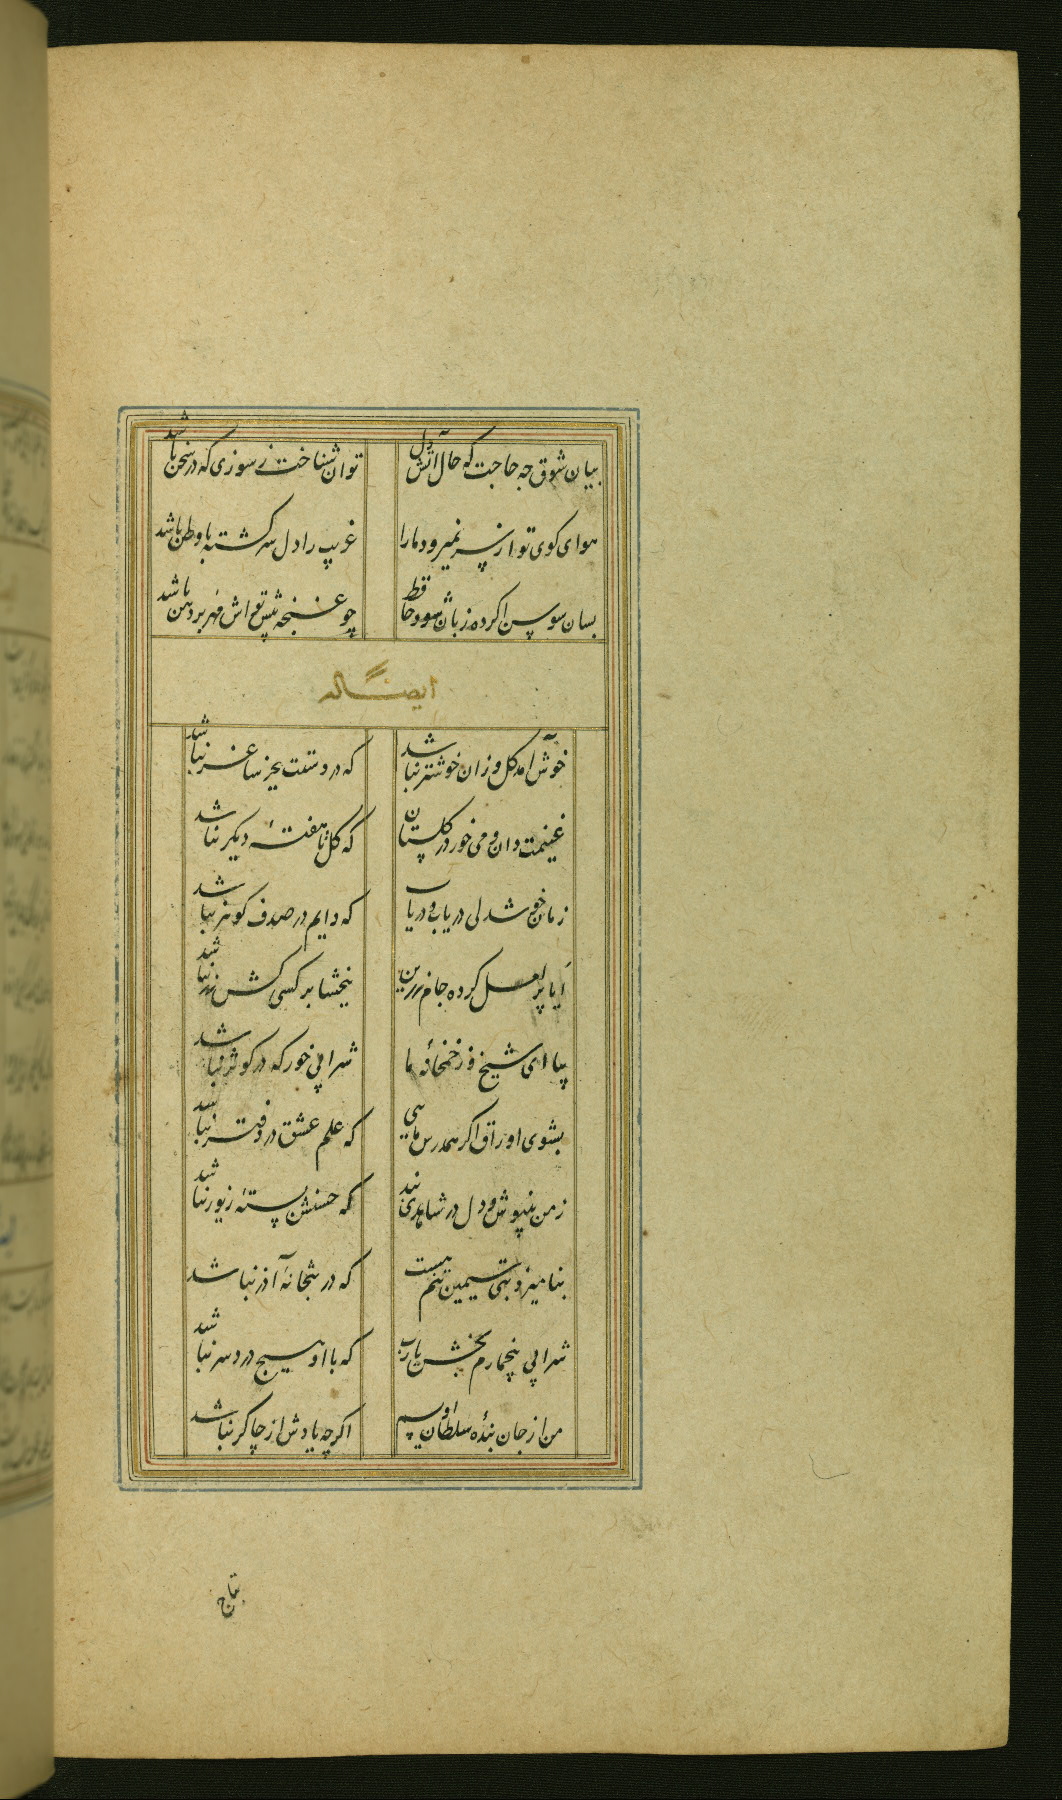 بیان شوق چه حاجت که حال آتش دل توان شناخت ز سوزی که در سخن باشد
هوای کوی تو از سر نمیرود ما را غریب را دل سرگشته با وطن باشد
بسان سوسن اگر ده زبان شود حافظ چو غنچه پیش تواش مهر بر دهن باشد
ایضا له
خوش آمد گل و زان خوشتر نباشد که در دستت بجز ساغر نباشد
غنیمت دان و می خور در گلستان که گل تا هفتهٔ دیگر نباشد
زمان خوشدلی دریاب و دریاب که دایم در صدف گوهر نباشد
ایا پر لعل کرده جام زرین ببخشا بر کسی کش زر نباشد
بیا ای شیخ و از خمخانهٔ ما شرابی خور که در کوثر نباشد
بشوی اوراق اگر همدرس مایی که علم عشق در دفتر نباشد
ز من بنیوش و دل در شاهدی بند که حسنش بستهٔ زیور نباشد
بنامیزد بتی سیمین تنم هست که در بتخانهٔ آذر نباشد
شرابی بیخمارم بخش یارب که با او هیچ درد سر نباشد
من از جان بندهٔ سلطان اویسم اگرچه یادش از چاکر نباشد
بتاج